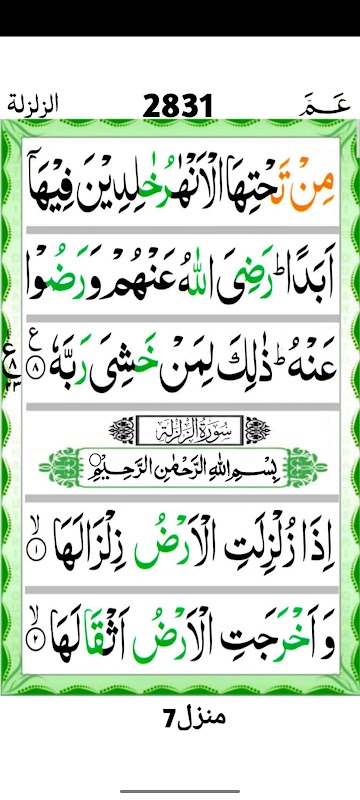 الزلزلة 2831 عَـمَّ
مِنْ تَحْتِهَا الْاَنْهٰرُ خٰلِدِيْنَ فِيْهَاۤ
اَبَدًا ؕ رَضِیَ اللّٰهُ عَنْهُمْ وَ رَضُوْا
عَنْهُ ؕ ذٰلِكَ لِمَنْ خَشِیَ رَبَّهٗ ۟۠ ﴿۸﴾
سُوْرَةُ الزِّلْزَلَة
بِسْمِ اللّٰهِ الرَّحْمٰنِ الرَّحِیْمِ
اِذَا زُلْزِلَتِ الْاَرْضُ زِلْزَالَهَا ۙ﴿۱﴾
وَ اَخْرَجَتِ الْاَرْضُ اَثْقَالَهَا ۙ﴿۲﴾
منزل 7